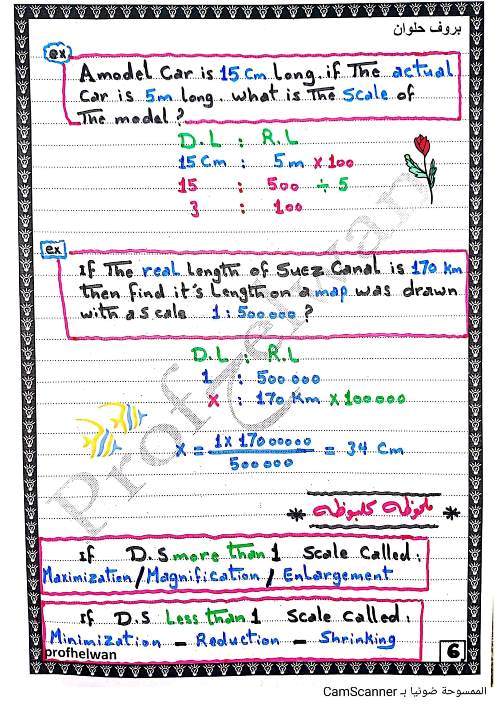 بروف حلوان
ex
A model Car is 15 Cm Long. if The actual
Car is 5m long. what is The Scale of
The model?
D.L : R.L
15 Cm : 5m x 100
15 : 500 ÷ 5
3 : 100
ex
If The real Length of Suez Canal is 170 Km
then find it's Length on a map was drawn
with a Scale 1 : 500 000 ?
D.L : R.L
1 : 500 000
x : 170 Km x 100 000
x = 1 x 17000000 / 500 000 = 34 Cm
* ملحوظة كلبوظة *
If D.S more than 1 Scale Called :
Maximization / Magnification / Enlargement
If D.S Less than 1 Scale Called :
Minimization - Reduction - Shrinking
profhelwan
6
Prof Helwan
الممسوحة ضوئيا بـ CamScanner